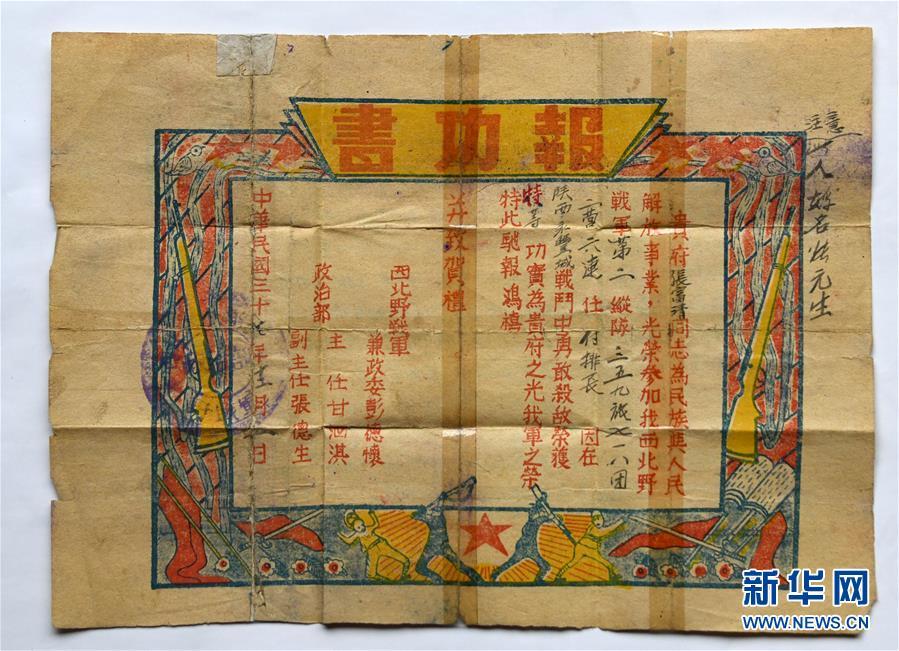 報功書
注意
人姓名 元生
貴府張富清同志為民族與人民
解放事業，光榮參加我西北野
戰軍第二縱隊三五九旅七一八团
二营六連任付排長 因在
陝西永豐城戰鬥中勇敢殺敌荣獲
特等功實為貴府之光我軍之榮
特此馳報鴻禧
并致賀禮
西北野戰軍
兼政委彭德懷
政治部
主任甘泗淇
副主任張德生
中華民國三十七年十二月 日
新华网
WWW.NEWS.CN